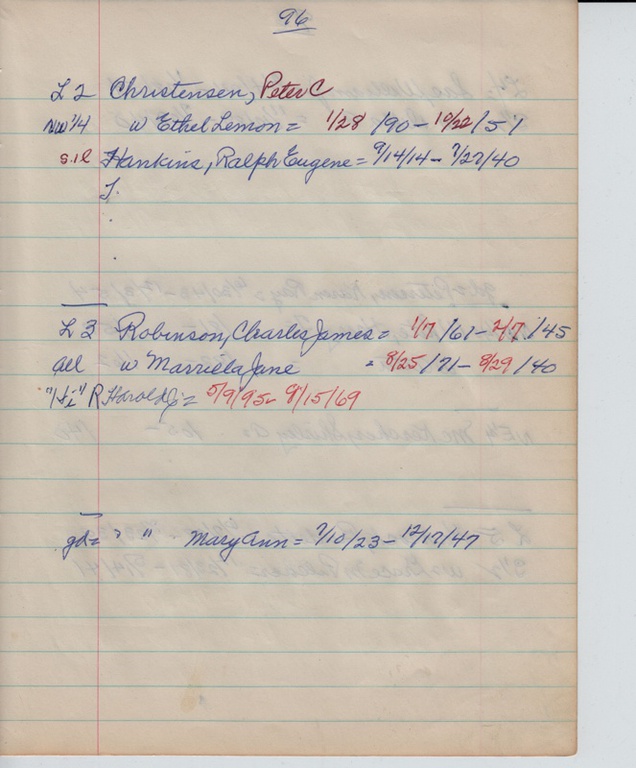 96
L 2 Christensen, Peter C
NW 1/4 w Ethel Lemon = 1/28/90 - 10/22/51
s.i.l Hankins, Ralph Eugene = 9/14/14 - 7/27/40
L 3 Robinson, Charles James = 1/7/61 - 2/7/45
all w Marriela Jane = 8/25/71 - 8/29/40
R Harold = 5/9/95 - 9/15/69
gd = ? " Mary Ann = 7/10/23 - 12/17/47